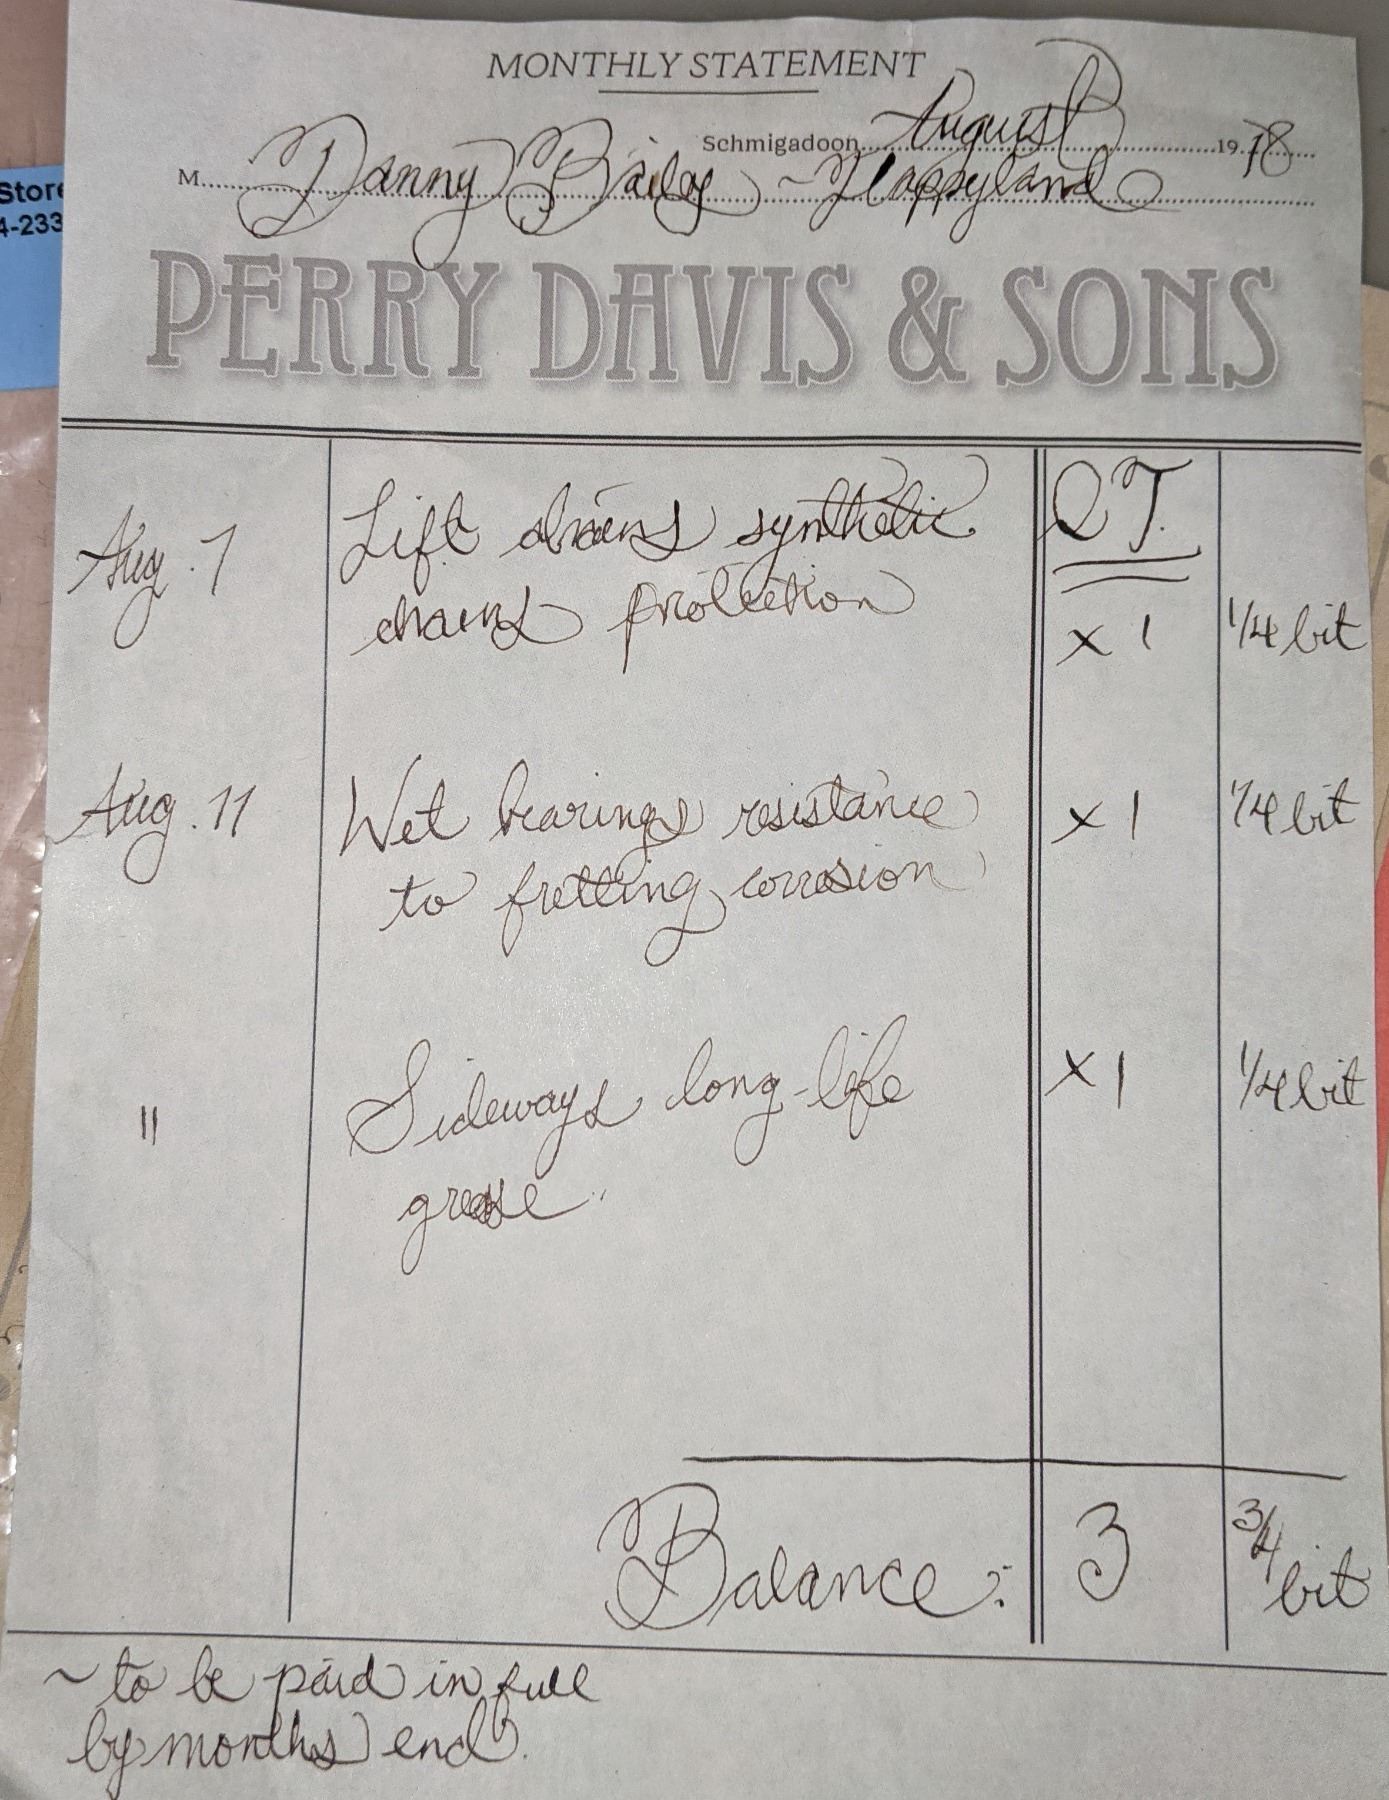 MONTHLY STATEMENT
Schmigadoon August 19 18
M Danny Bailey ~ Happyland
Store
4-233
PERRY DAVIS & SONS
QT.
Aug. 7 Lift chains synthetic
chains protection x 1 1/4 bit
Aug. 11 Wet bearings resistance x 1 1/4 bit
to fretting corrosion
" Sideways long-life x 1 1/4 bit
grease
Balance: 3 3/4
bit
~ to be paid in full
by months end.